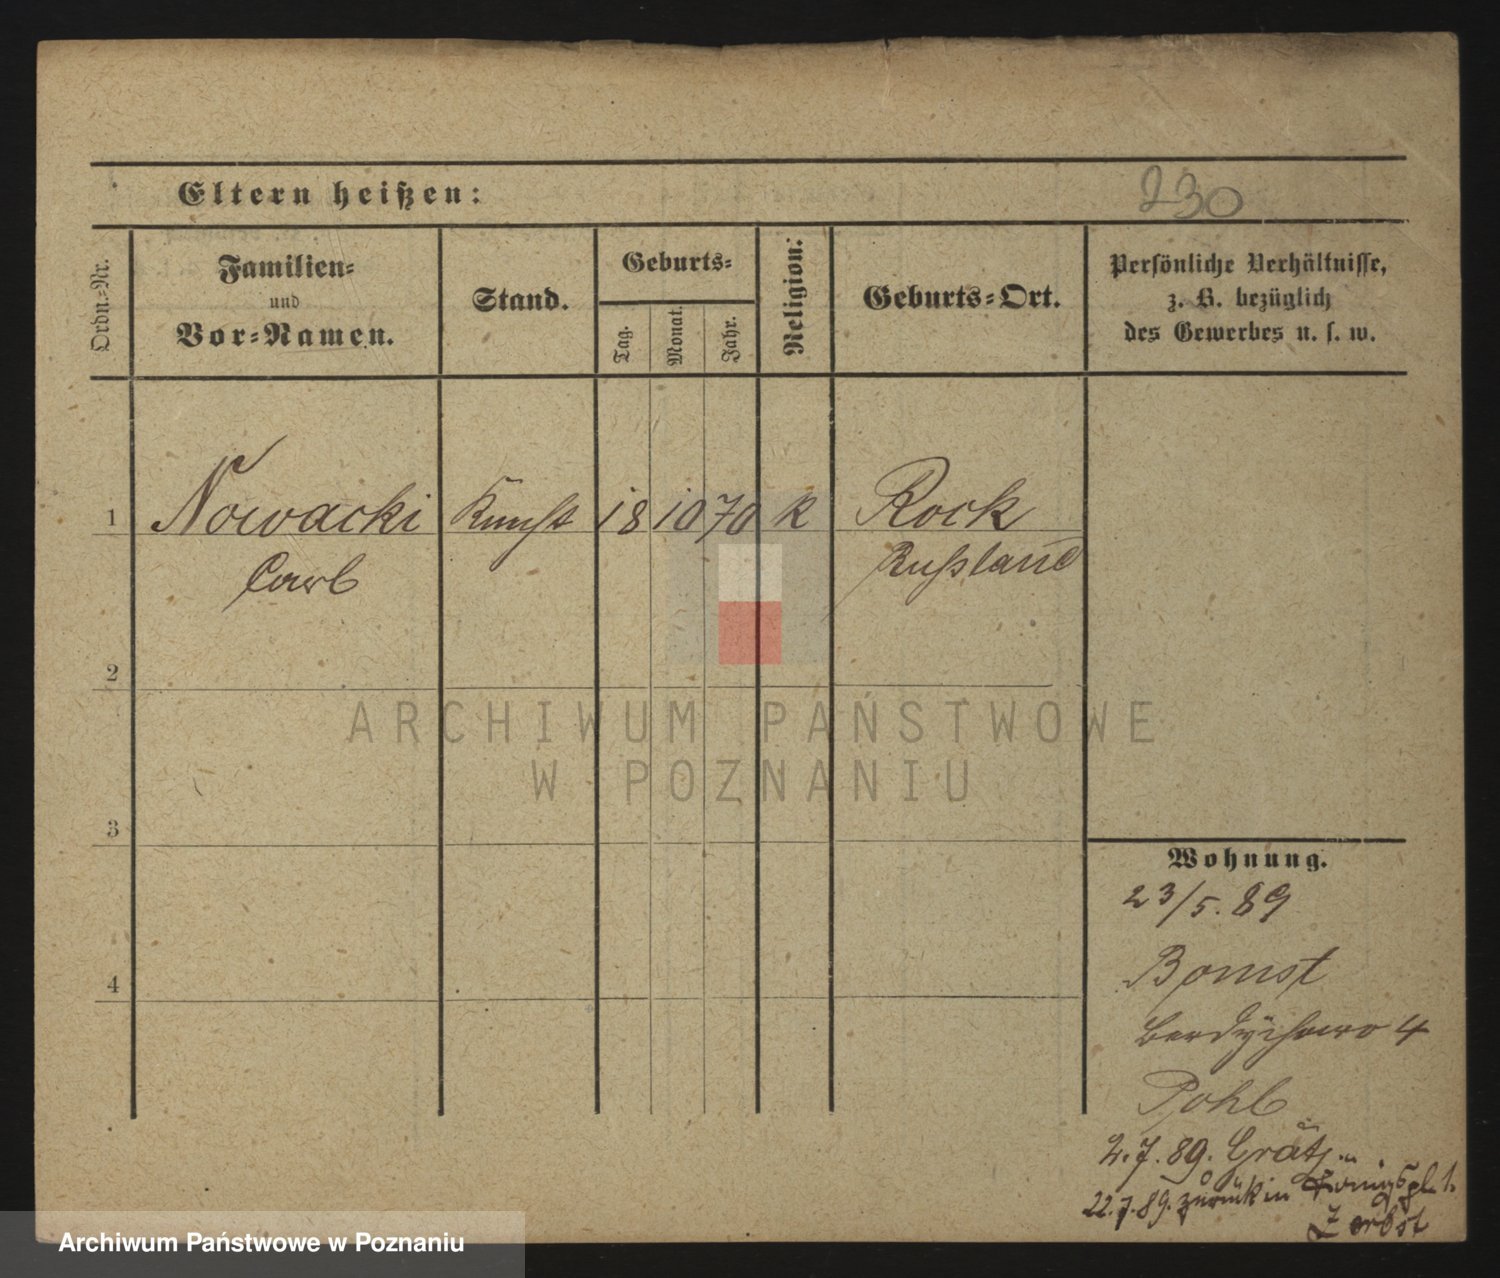 Eltern heißen:
230
Ordn.-Nr.
Familien-
und
Vor-Namen.
Stand.
Geburts-
Tag.
Monat.
Jahr.
Religion:
Geburts-Ort.
Persönliche Verhältnisse,
z. B. bezüglich
des Gewerbes u. s. w.
1
Nowacki
Carl
Kunst
18
10
70
k
Rock
Russland
2
3
4
Wohnung.
23/5. 89
Bomst
Berdychowo 4
Pohl
2.7.89. Grätz
22.7.89. zurück in Königspl 1.
Zerbst
ARCHIWUM PAŃSTWOWE
W POZNANIU
Archiwum Państwowe w Poznaniu